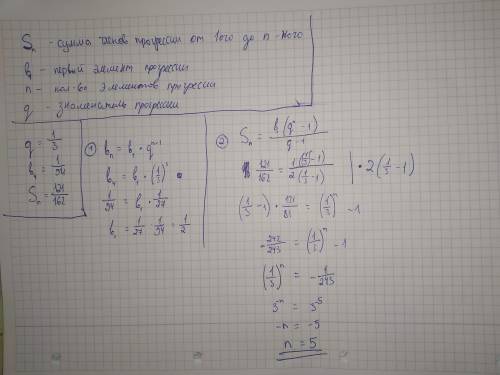 Sₙ - сумма членов прогрессии от 1ого до n-ного
b₁ - первый элемент прогрессии
n - кол-во элементов прогрессии
q - знаменатель прогрессии
q = 1/3
b₄ = 1/54
Sₙ = 121/162
① bₙ = b₁ · qⁿ⁻¹
b₄ = b₁ · (1/3)³
1/54 = b₁ · 1/27
b₁ = 1/27 · 1/54 = 1/2
② Sₙ = b₁(qⁿ - 1)/(q - 1)
121/162 = 1((1/3)ⁿ - 1)/2(1/3 - 1) | · 2(1/3 - 1)
(1/3 - 1) · 121/81 = (1/3)ⁿ - 1
- 242/243 = (1/3)ⁿ - 1
(1/3)ⁿ = - 1/243
3⁻ⁿ = 3⁻⁵
-n = -5
n = 5